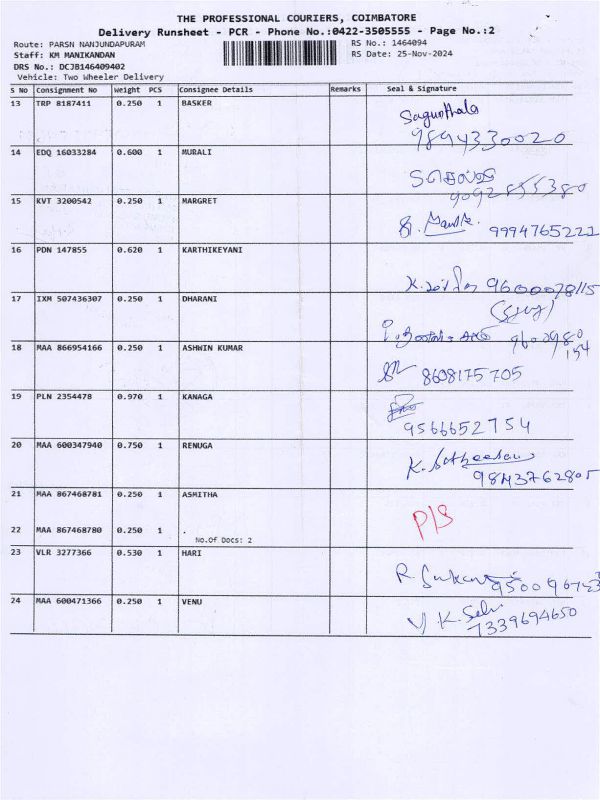 THE PROFESSIONAL COURIERS, COIMBATORE
Delivery Runsheet - PCR - Phone No.:0422-3505555 - Page No.:2
Route: PARSN NANJUNDAPURAM RS No.: 1464094
Staff: KM MANIKANDAN RS Date: 25-Nov-2024
DRS No.: DCJB146409402
Vehicle: Two Wheeler Delivery
S No Consignment No Weight PCS Consignee Details Remarks Seal & Signature
13 TRP 8187411 0.250 1 BASKER
Sagunthala
9894330020
14 EDQ 16033284 0.600 1 MURALI
9092855380
15 KVT 3200542 0.250 1 MARGRET
9994765221
16 PDN 147855 0.620 1 KARTHIKEYANI
9600078115
17 IXM 507436307 0.250 1 DHARANI
18 MAA 866954166 0.250 1 ASHWIN KUMAR
8608175705
19 PLN 2354478 0.970 1 KANAGA
9566652754
20 MAA 600347940 0.750 1 RENUGA
9843762805
21 MAA 867468781 0.250 1 ASMITHA
P/S
22 MAA 867468780 0.250 1 .
No.Of Docs: 2
23 VLR 3277366 0.530 1 HARI
24 MAA 600471366 0.250 1 VENU
7339694650